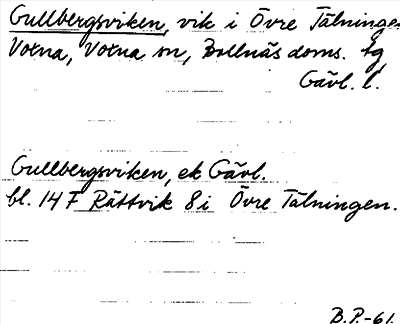 Gullbergsviken, vik i Övre Tälningen
Voxna, Voxna sn, Bollnäs doms. tg,
Gävl. l.
Gullbergsviken, ek Gävl.
bl. 14 F Rättvik 8 i Övre Tälningen.
B.P.-61.